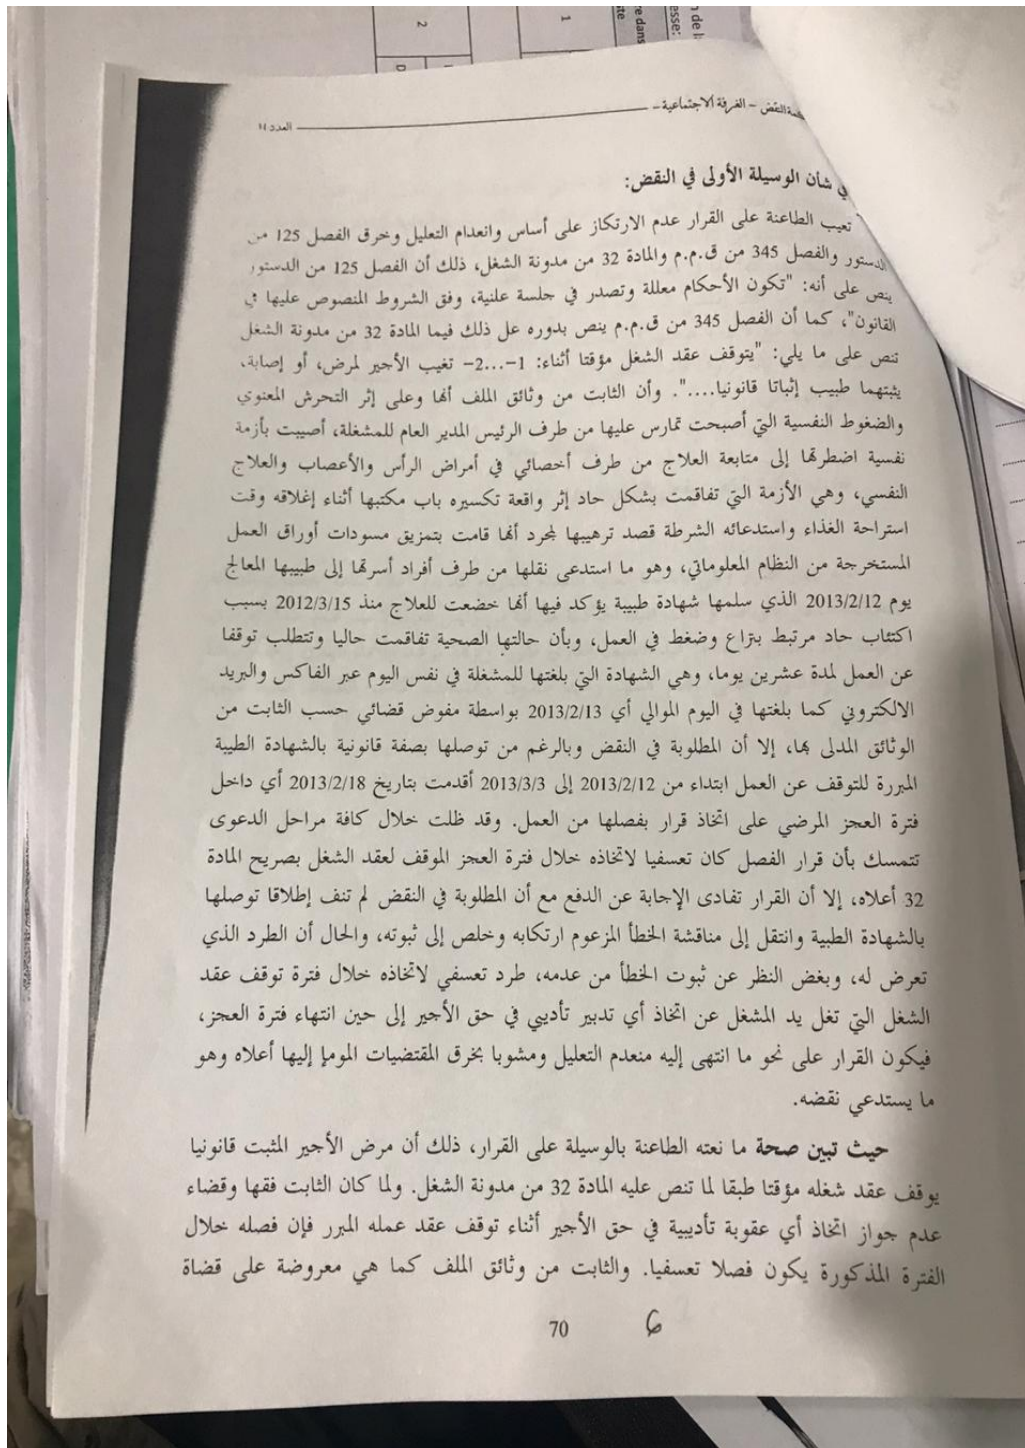 النقض - الغرفة الاجتماعية-
العدد 14
شأن الوسيلة الأولى في النقض:
تعيب الطاعنة على القرار عدم الارتكاز على أساس وانعدام التعليل وخرق الفصل 125 من
الدستور والفصل 345 من ق.م.م والمادة 32 من مدونة الشغل، ذلك أن الفصل 125 من الدستور
ينص على أنه: "تكون الأحكام معللة وتصدر في جلسة علنية، وفق الشروط المنصوص عليها في
القانون"، كما أن الفصل 345 من ق.م.م ينص بدوره عل ذلك فيما المادة 32 من مدونة الشغل
تنص على ما يلي: "يتوقف عقد الشغل مؤقتا أثناء: 1-...2- تغيب الأجير لمرض، أو إصابة،
يثبتهما طبيب إثباتا قانونيا....". وأن الثابت من وثائق الملف أنها وعلى إثر التحرش المعنوي
والضغوط النفسية التي أصبحت تمارس عليها من طرف الرئيس المدير العام للمشغلة، أصيبت بأزمة
نفسية اضطرتها إلى متابعة العلاج من طرف أخصائي في أمراض الرأس والأعصاب والعلاج
النفسي، وهي الأزمة التي تفاقمت بشكل حاد إثر واقعة تكسيره باب مكتبها أثناء إغلاقه وقت
استراحة الغذاء واستدعائه الشرطة قصد ترهيبها لمجرد أنها قامت بتمزيق مسودات أوراق العمل
المستخرجة من النظام المعلوماتي، وهو ما استدعى نقلها من طرف أفراد أسرتها إلى طبيبها المعالج
يوم 2013/2/12 الذي سلمها شهادة طبيبة يؤكد فيها أنها خضعت للعلاج منذ 2012/3/15 بسبب
اكتئاب حاد مرتبط بنزاع وضغط في العمل، وبأن حالتها الصحية تفاقمت حاليا وتتطلب توقفا
عن العمل لمدة عشرين يوما، وهي الشهادة التي بلغتها للمشغلة في نفس اليوم عبر الفاكس والبريد
الالكتروني كما بلغتها في اليوم الموالي أي 2013/2/13 بواسطة مفوض قضائي حسب الثابت من
الوثائق المدلى بها، إلا أن المطلوبة في النقض وبالرغم من توصلها بصفة قانونية بالشهادة الطيبة
المبررة للتوقف عن العمل ابتداء من 2013/2/12 إلى 2013/3/3 أقدمت بتاريخ 2013/2/18 أي داخل
فترة العجز المرضي على اتخاذ قرار بفصلها من العمل. وقد ظلت خلال كافة مراحل الدعوى
تتمسك بأن قرار الفصل كان تعسفيا لاتخاذه خلال فترة العجز الموقف لعقد الشغل بصريح المادة
32 أعلاه، إلا أن القرار تفادى الإجابة عن الدفع مع أن المطلوبة في النقض لم تنف إطلاقا توصلها
بالشهادة الطبية وانتقل إلى مناقشة الخطأ المزعوم ارتكابه وخلص إلى ثبوته، والحال أن الطرد الذي
تعرض له، وبغض النظر عن ثبوت الخطأ من عدمه، طرد تعسفي لاتخاذه خلال فترة توقف عقد
الشغل التي تغل يد المشغل عن اتخاذ أي تدبير تأديبي في حق الأجير إلى حين انتهاء فترة العجز،
فيكون القرار على نحو ما انتهى إليه منعدم التعليل ومشوبا بخرق المقتضيات المومإ إليها أعلاه وهو
ما يستدعي نقضه.
حيث تبين صحة ما نعته الطاعنة بالوسيلة على القرار، ذلك أن مرض الأجير المثبت قانونيا
يوقف عقد شغله مؤقتا طبقا لما تنص عليه المادة 32 من مدونة الشغل. ولما كان الثابت فقها وقضاء
عدم جواز اتخاذ أي عقوبة تأديبية في حق الأجير أثناء توقف عقد عمله المبرر فإن فصله خلال
الفترة المذكورة يكون فصلا تعسفيا. والثابت من وثائق الملف كما هي معروضة على قضاة
70
6